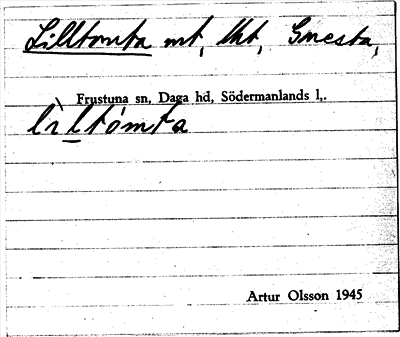 Lilltomta mt, tkt, Gnesta,
Frustuna sn, Daga hd, Södermanlands l,.
lìltómta
Artur Olsson 1945